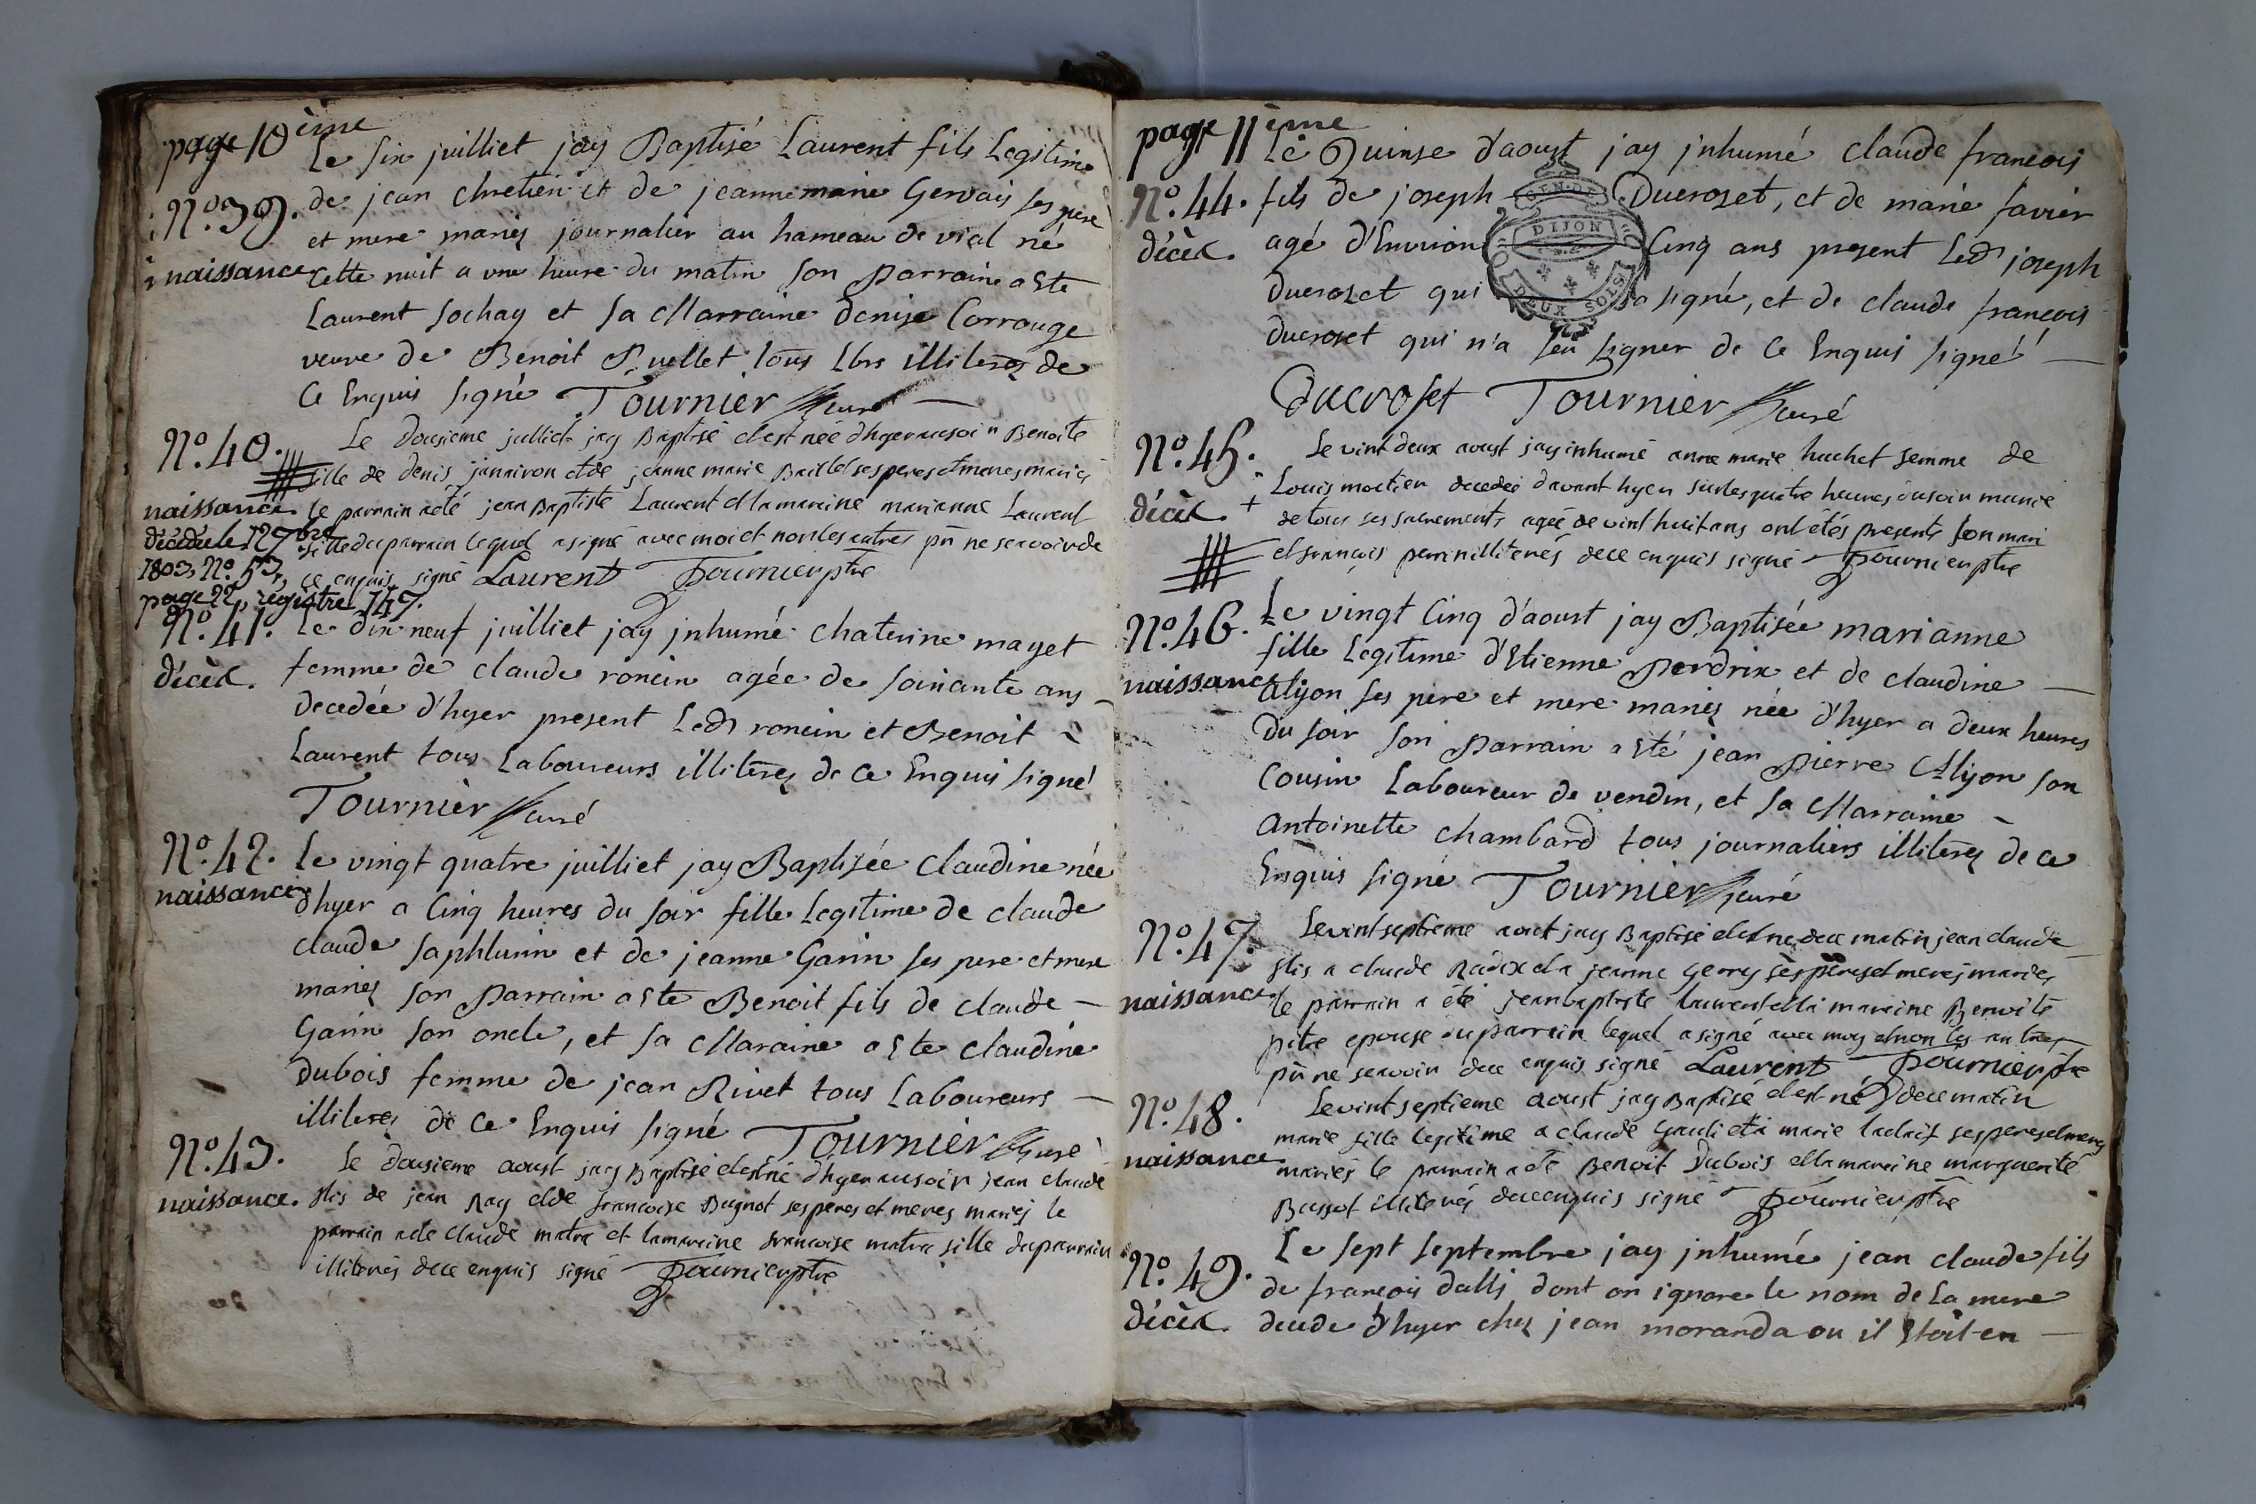 page 10ème
Le six juilliet jay Baptisé Laurent fils Legitime
N.º 39. de jean chretien et de jeanne marie Gervais ses pere
et mere mariez journalier au hameau de vial né
naissance cette nuit a une heure du matin son Parrain a Ete
Laurent sochay et sa Marraine denise Corrouge
veuve de Benoit Ruellet tous Lbrs illiterez de
Ce Enquis signé Tournier curé
N.º 40. Le dousieme julliet jay Baptisé et est née d'hyer au soir Benoite
fille de denis janairon et de jeanne marie Baillet ses peres et meres mariés
naissance le parrain a été jean Baptiste Laurent et la maraine marianne Laurent
décédée le 12 7bre fille du parrain lequel a signé avec moi et non les autres pr ne scavoir de
1803, N.º 53, ce enquis signé Laurent Tournier ptre
page 22, registre 147.
N.º 41. Le dix neuf juilliet jay jnhumé chaterine mayet
décès. femme de claude roncin agée de soixante ans
decedée d'hyer present Ledt roncin et Benoit
Laurent tous Laboureurs illiterez de Ce Enquis signé
Tournier curé
N.º 42. Le vingt quatre juilliet jay Baptisée Claudine née
naissance d'hyer a Cinq heures du soir fille Legitime de claude
claude saphlurin et de jeanne Garin ses pere et mere
mariez son Parrain a Ete Benoit fils de claude
Garin son oncle, et sa Maraine a Ete claudine
dubois femme de jean Rivet tous Laboureurs
illiterez de Ce Enquis signé Tournier curé
N.º 43. Le dousieme aoust jay Baptisé et est né d'hyer au soir jean claude
naissance. fils de jean Ray et de francoise Bugnot ses peres et meres mariez le
parrain a ete claude matra et la maraine francoise matra fille du parrain
illiterés de ce enquis signé Tournier ptre
page 11ème
Le Quinse d'aoust jay jnhumé claude francois
N.º 44. fils de joseph Ducroset, et de marie favier
décès. agé d'Environ Cinq ans present Ledt joseph
GEN. DE
DIJON
DEUX SOLS
Ducroset qui a signé, et de claude francois
ducroset qui n'a seu signer de Ce Enquis signé
Ducroset Tournier curé
N.º 45. Le vint deux aoust jay inhumé anne marie huchet femme de
Louis moctier decedée davant hyer sur les quatre heures du soir munie
décès. + de tous ses sacrements agée de vint huit ans ont étés presents son mari
et francois perrin illiterés de ce enquis signé Tournier ptre
N.º 46. Le vingt Cinq d'aoust jay Baptisée marianne
fille Legitime d'Etienne Perdrix et de claudine
naissance alyon ses pere et mere mariez née d'hyer a deux heures
du soir son Parrain a Eté jean Pierre Alyon son
Cousin Laboureur de vendin, et sa Marraine
Antoinette chambard tous journaliers illiterez de ce
Enquis signé Tournier curé
N.º 47. Le vint septieme aout jay Baptisé et est né de ce matin jean claude
fils a claude Radix et a jeanne Gerry ses peres et meres mariés
naissance le parrain a été jean baptiste laurent et la maraine Benoite
pitre epouse du parrain lequel a signé avec moy et non les autres
pr ne scavoir de ce enquis signé Laurent Tournier ptre
N.º 48. Le vint septieme aoust jay Baptisé et est né de ce matin
marie fille legitime a claude Gauli et a marie ladaix ses peres et meres
naissance mariés le parrain a été Benoit Dubois et la maraine marguerite
Bussot illiterés de ce enquis signé Tournier ptre
N.º 49. Le sept septembre jay jnhumé jean claude fils
de francois dalli dont on ignore le nom de La mere
décès. decede d'hyer chez jean moranda ou il Etoit en